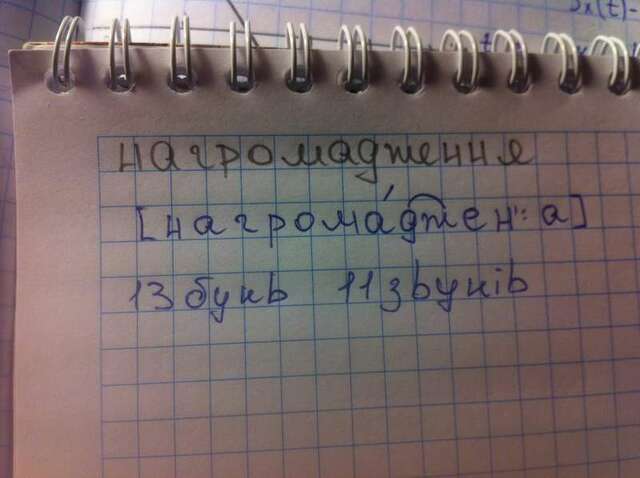 нагромадження
[нагрома́д͡жен':а]
13 букв 11 звуків